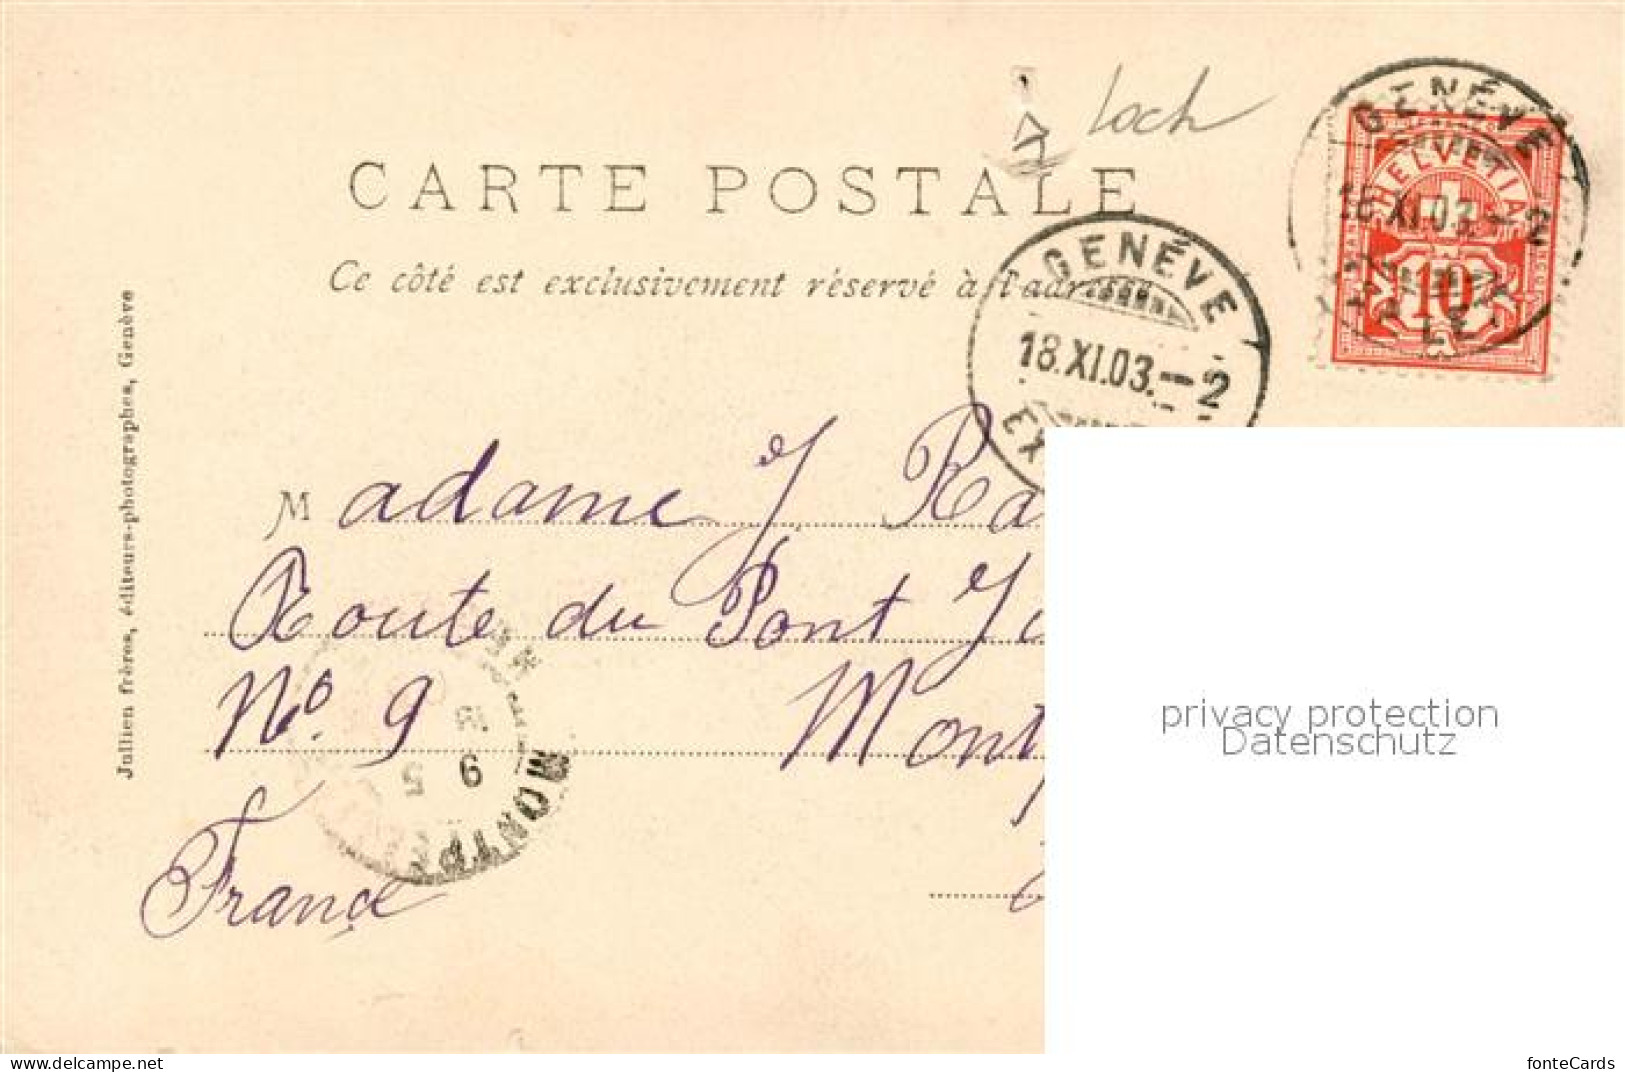 loch
CARTE POSTALE
Ce côté est exclusivement réservé à l'adresse
Julien frères, éditeurs-photographes, Genève
GENÈVE
18.XI.03.—2
HELVETIA
10
GENÈVE
18.XI.03.—2
EX
Madame J Ra
Route du Pont J
No. 9 Mont
France
MONTP
privacy protection
Datenschutz
www.delcampe.net
fonteCards